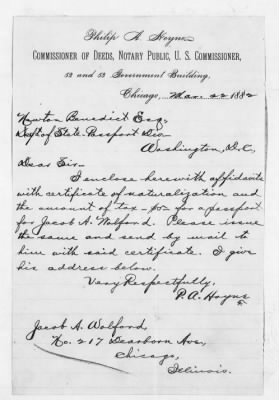 Philip A. Hoyne,
COMMISSIONER OF DEEDS, NOTARY PUBLIC, U. S. COMMISSIONER,
52 and 53 Government Building,
Chicago, Mar. 22 1882
Newton Benedict Esq.
Dept of State. Passport Div
Washington, D.C,
Dear Sir—
I enclose herewith affidavits
with certificate of naturalization and
the amount of tax — $5— for a passport
for Jacob A. Wolford. Please issue
the same and send by mail to
him with said certificate. I give
his address below.
Very Respectfully,
P.A. Hoyne
Jacob A. Wolford,
No. 217 Dearborn Ave,
Chicago,
Illinois.